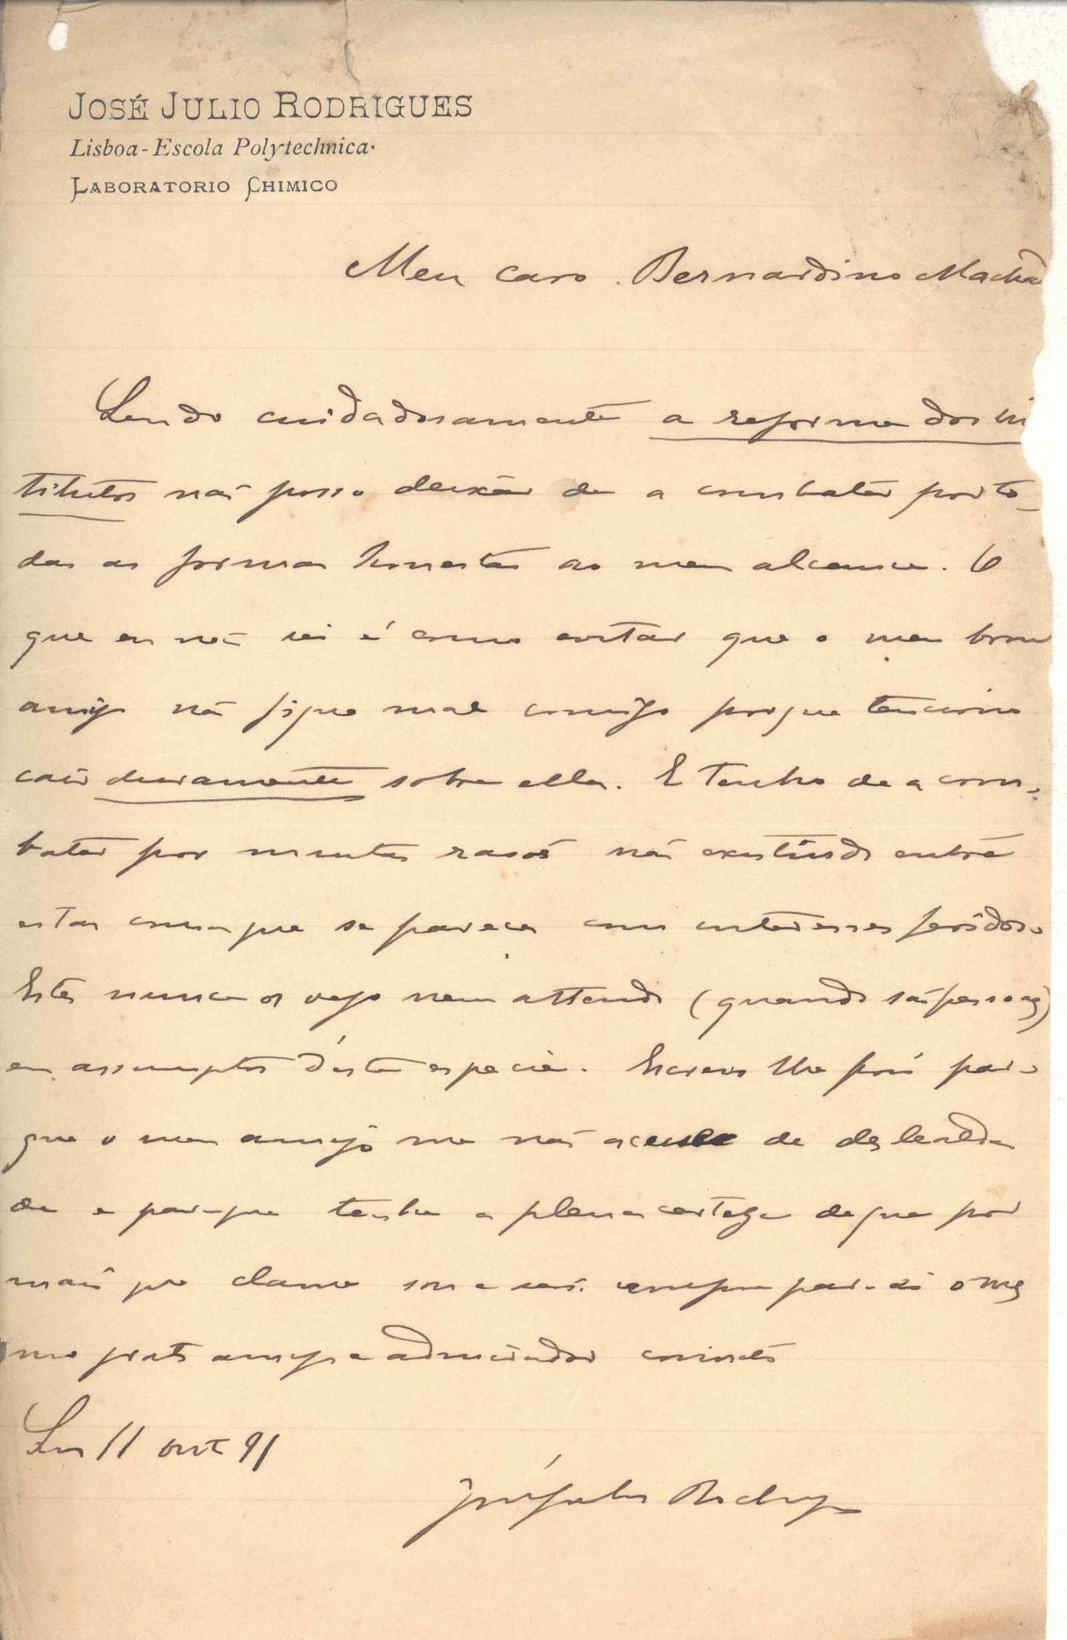 JOSÉ JULIO RODRIGUES
Lisboa-Escola Polytechnica.
LABORATORIO CHIMICO
Meu caro Bernardino Macha
Lendo cuidadosamente a reforma dos in
titutos não posso deixar de a combater por to-
das as formas honestas ao meu alcance. O
que eu não sei é como evitar que o meu bom
amigo não fique mal comigo porque tenciono
cair duramente sobre ella. E tenho de a com-
bater por muitas rasões não existindo entre
estas cousa que se pareça com interesses feridos.
Estes nunca os vejo nem attendo (quando são pessoaes)
em assumptos d'esta especie. Escrevo lhe pois para
que o meu amigo me não accuse de deslealda
de e para que tenha a plena certeza de que por
mais que clame sou e serei sempre para si o mes
mo grato amigo e admirador
Lx 11 out 91
José Julio Rodrigues